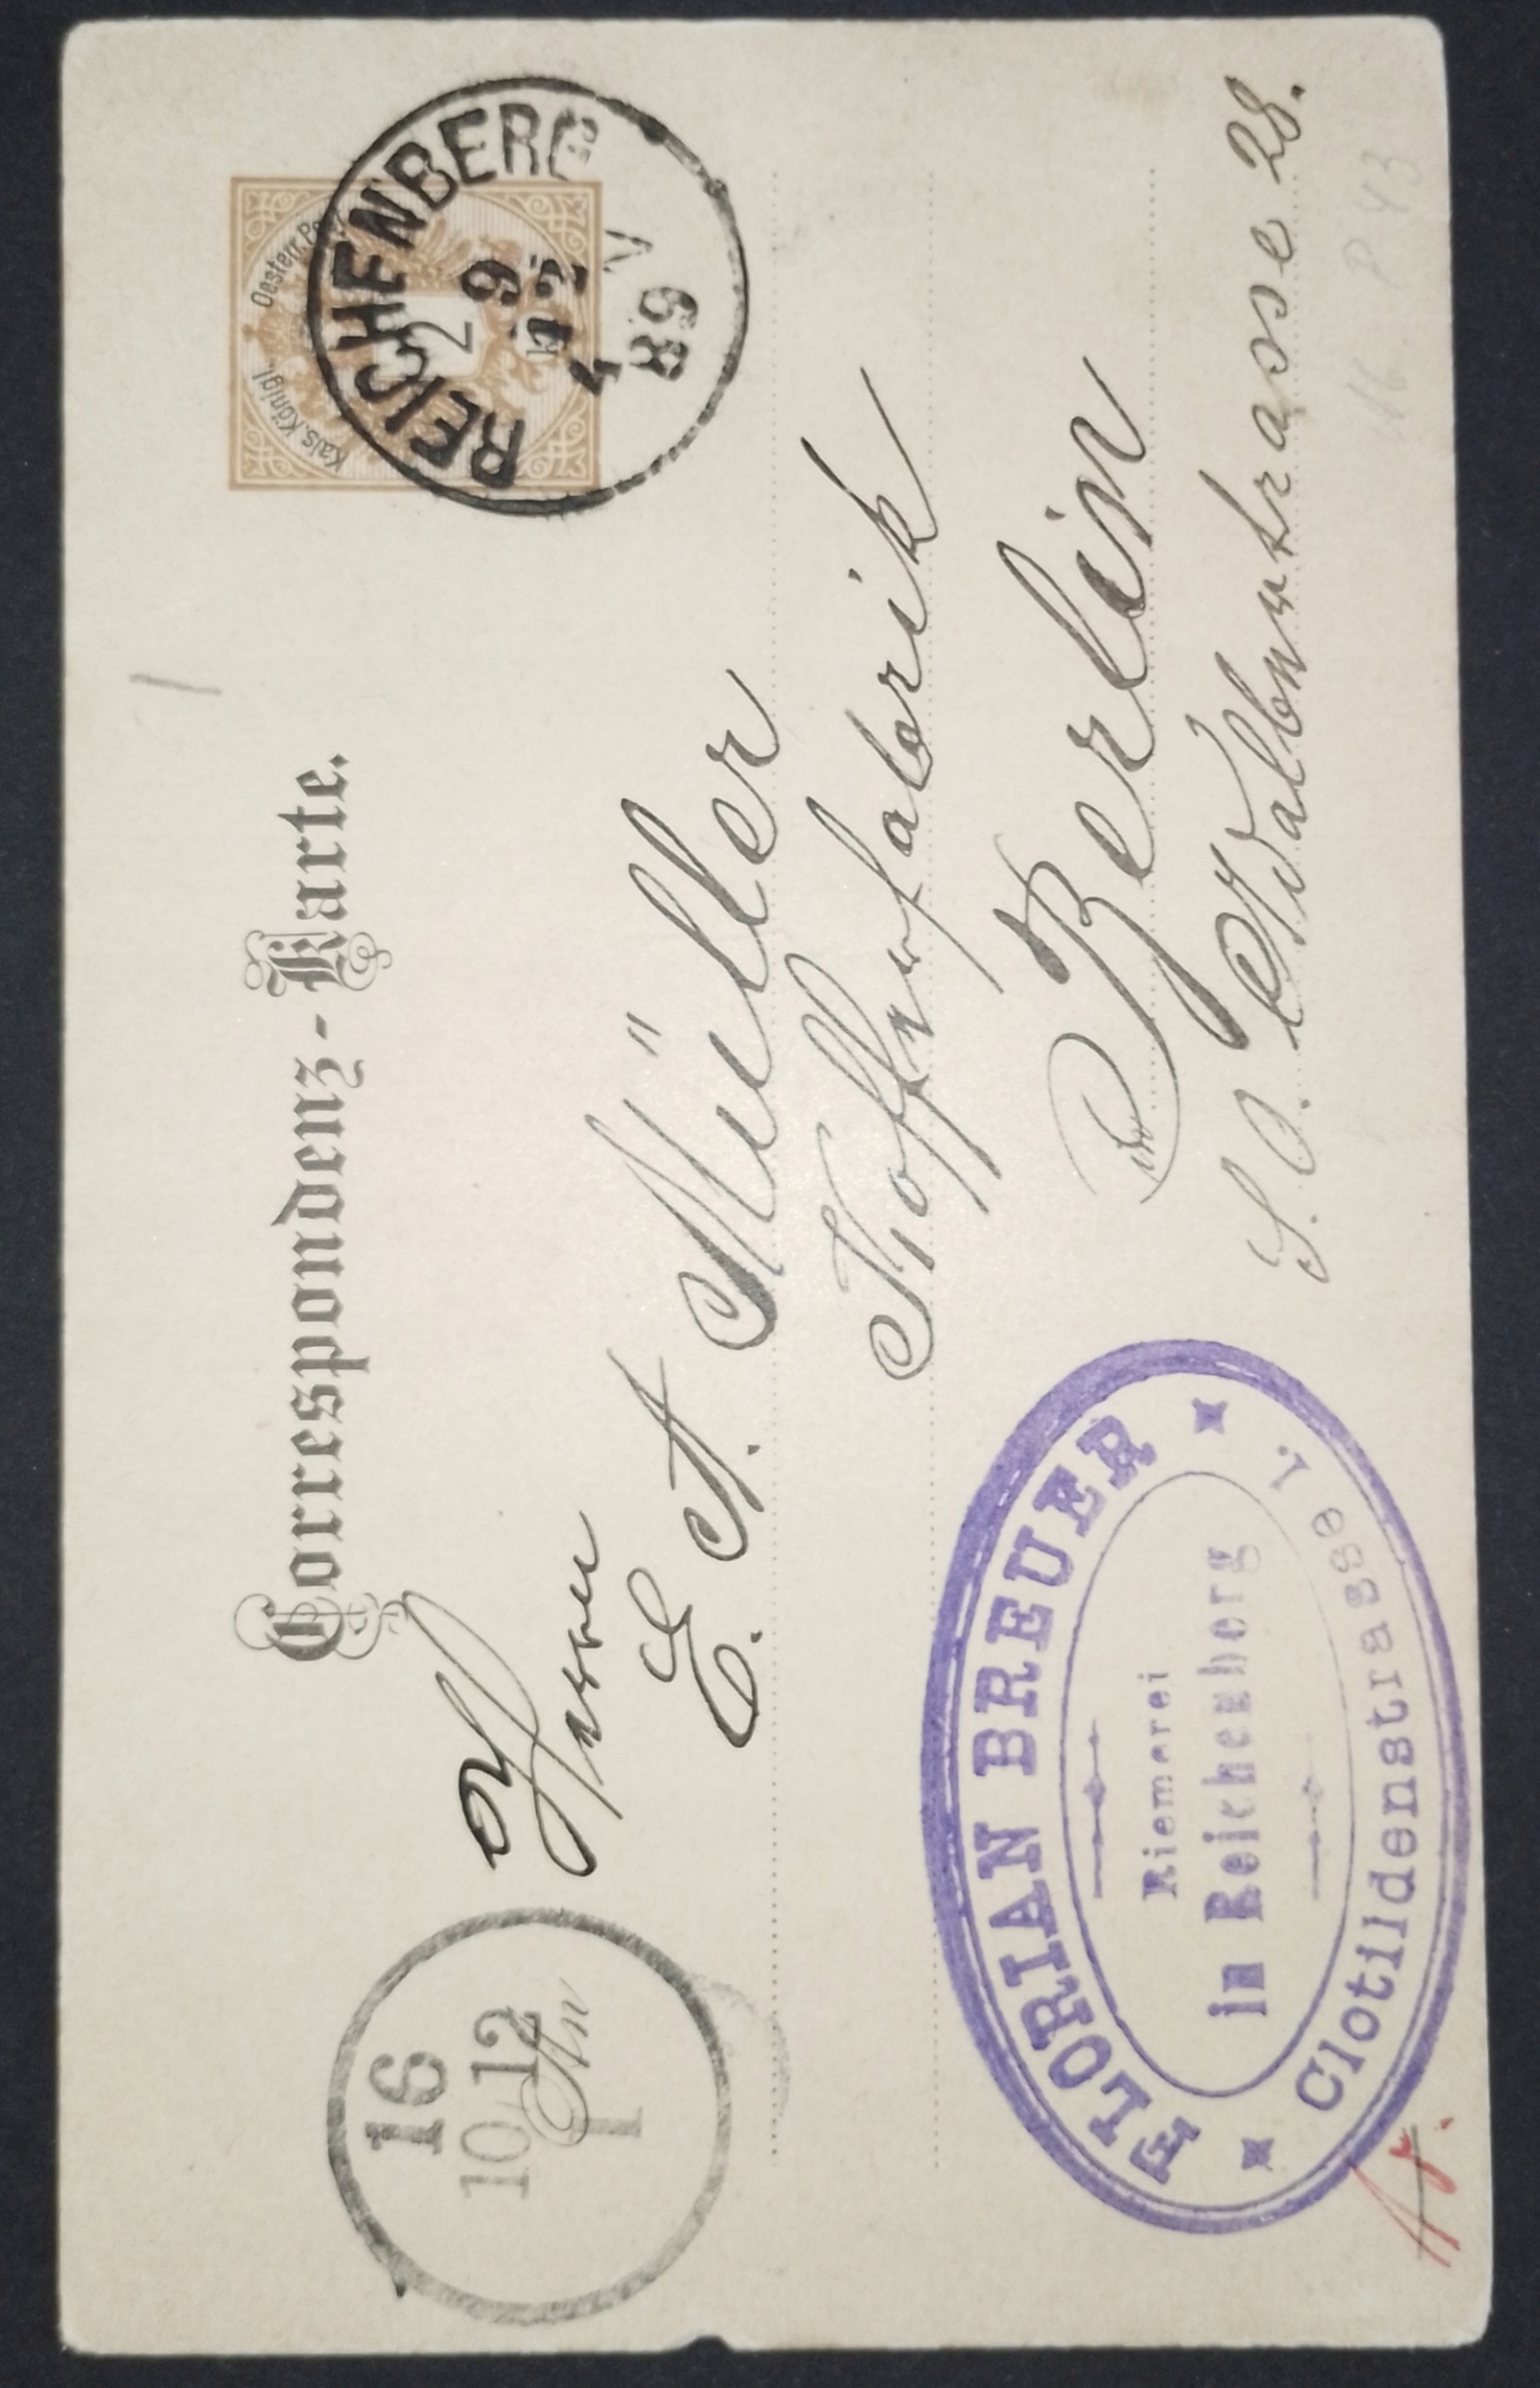 Correspondenz-Karte.
Kais. Königl. Oesterr. Post
2
REICHENBERG
89
16
10 12
1
Herrn
E. A. Müller
Kofferfabrik
in Berlin
S. O. 28.
FLORIAN BREUER
Riemerei
in Reichenberg
Clotildenstrasse 1.
P 43